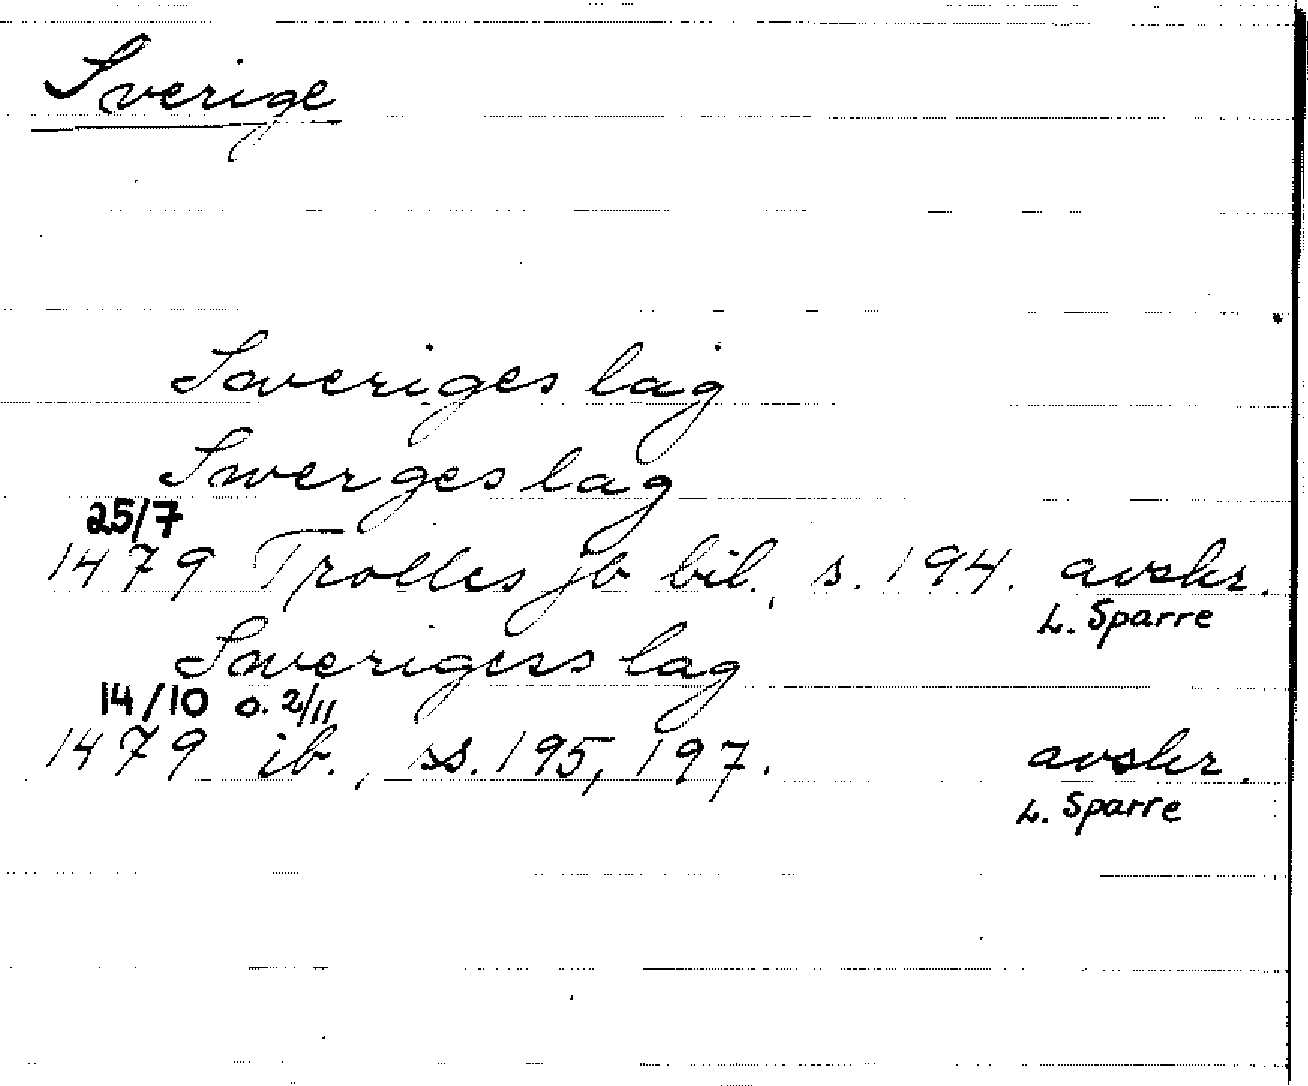 Sverige
Sweriges lag
Swerges lag
25/7
1479 Trolles jb bil., s. 194. avskr.
L. Sparre
Swerigess lag
14/10 o. 2/11
1479 ib., ss. 195, 197. avskr.
L. Sparre